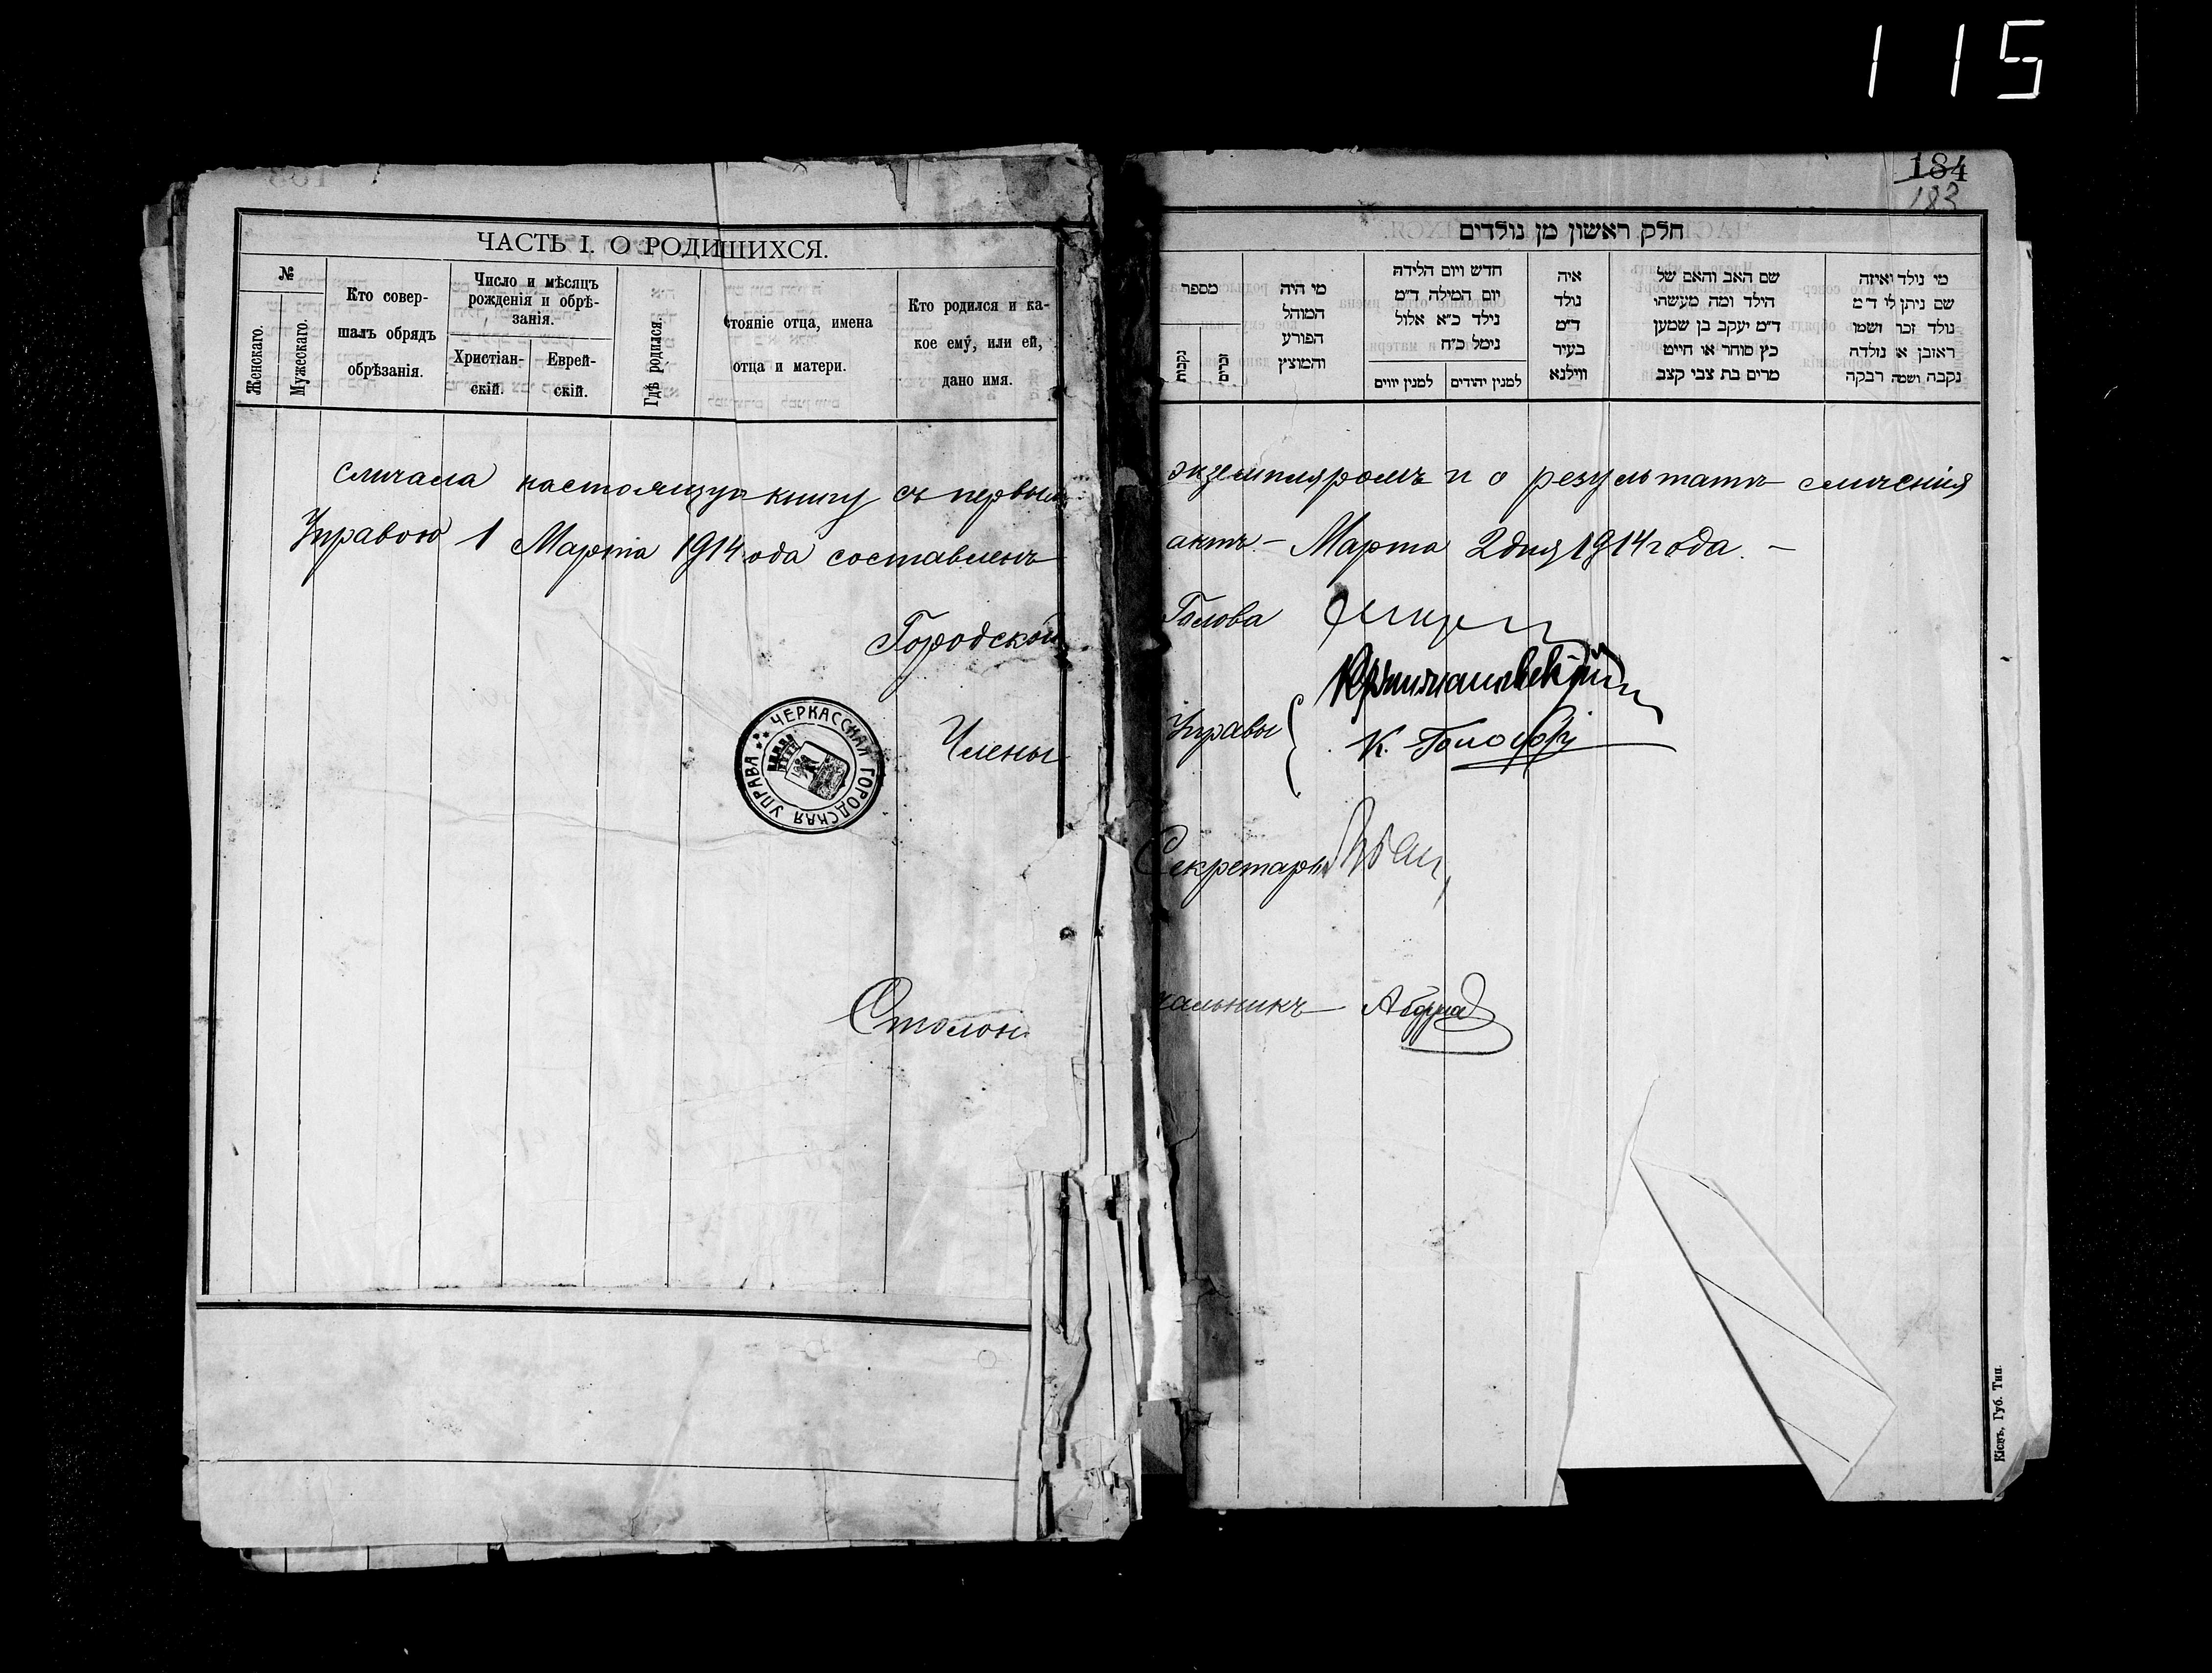 115
184
183
ЧАСТЬ I. О РОДИВШИХСЯ.
№
Женскаго.
Мужескаго.
Кто совер-
шалъ обрядъ
обрѣзанія.
Число и мѣсяцъ
рожденія и обрѣ-
занія.
Христіан-
скій.
Еврей-
скій.
Гдѣ родился.
стояніе отца, имена
отца и матери.
Кто родился и ка-
кое ему, или ей,
дано имя.
חלק ראשון מן נולדים
מספר
נקבות
זכרים
מי היה
המוהל
הפורע
והמוצץ
חדש ויום הלידה
יום המילה ד״מ
נילד כ״א אלול
נימל כ״ח
למנין יווים
למנין יהודים
איה
נולד
ד״מ
בעיר
ווילנא
שם האב והאם של
הילד ומה מעשהו
ד״מ יעקב בן שמען
כץ סוחר או חייט
מרים בת צבי קצב
מי נולד ואיזה
שם ניתן לו ד״מ
נולד זכר ושמו
ראובן או נולדה
נקבה ושמה רבקה
сличала настоящую книгу съ первымъ экземпляромъ и о результатѣ сличенія
Управою 1 Марта 1914 года составленъ актъ.– Марта 2 дня 1914 года. –
Городской Голова
Члены Управы
К.
Секретарь
Столоначальникъ
ЧЕРКАССКАЯ ГОРОДСКАЯ УПРАВА
Кіевъ, Губ. Тип.